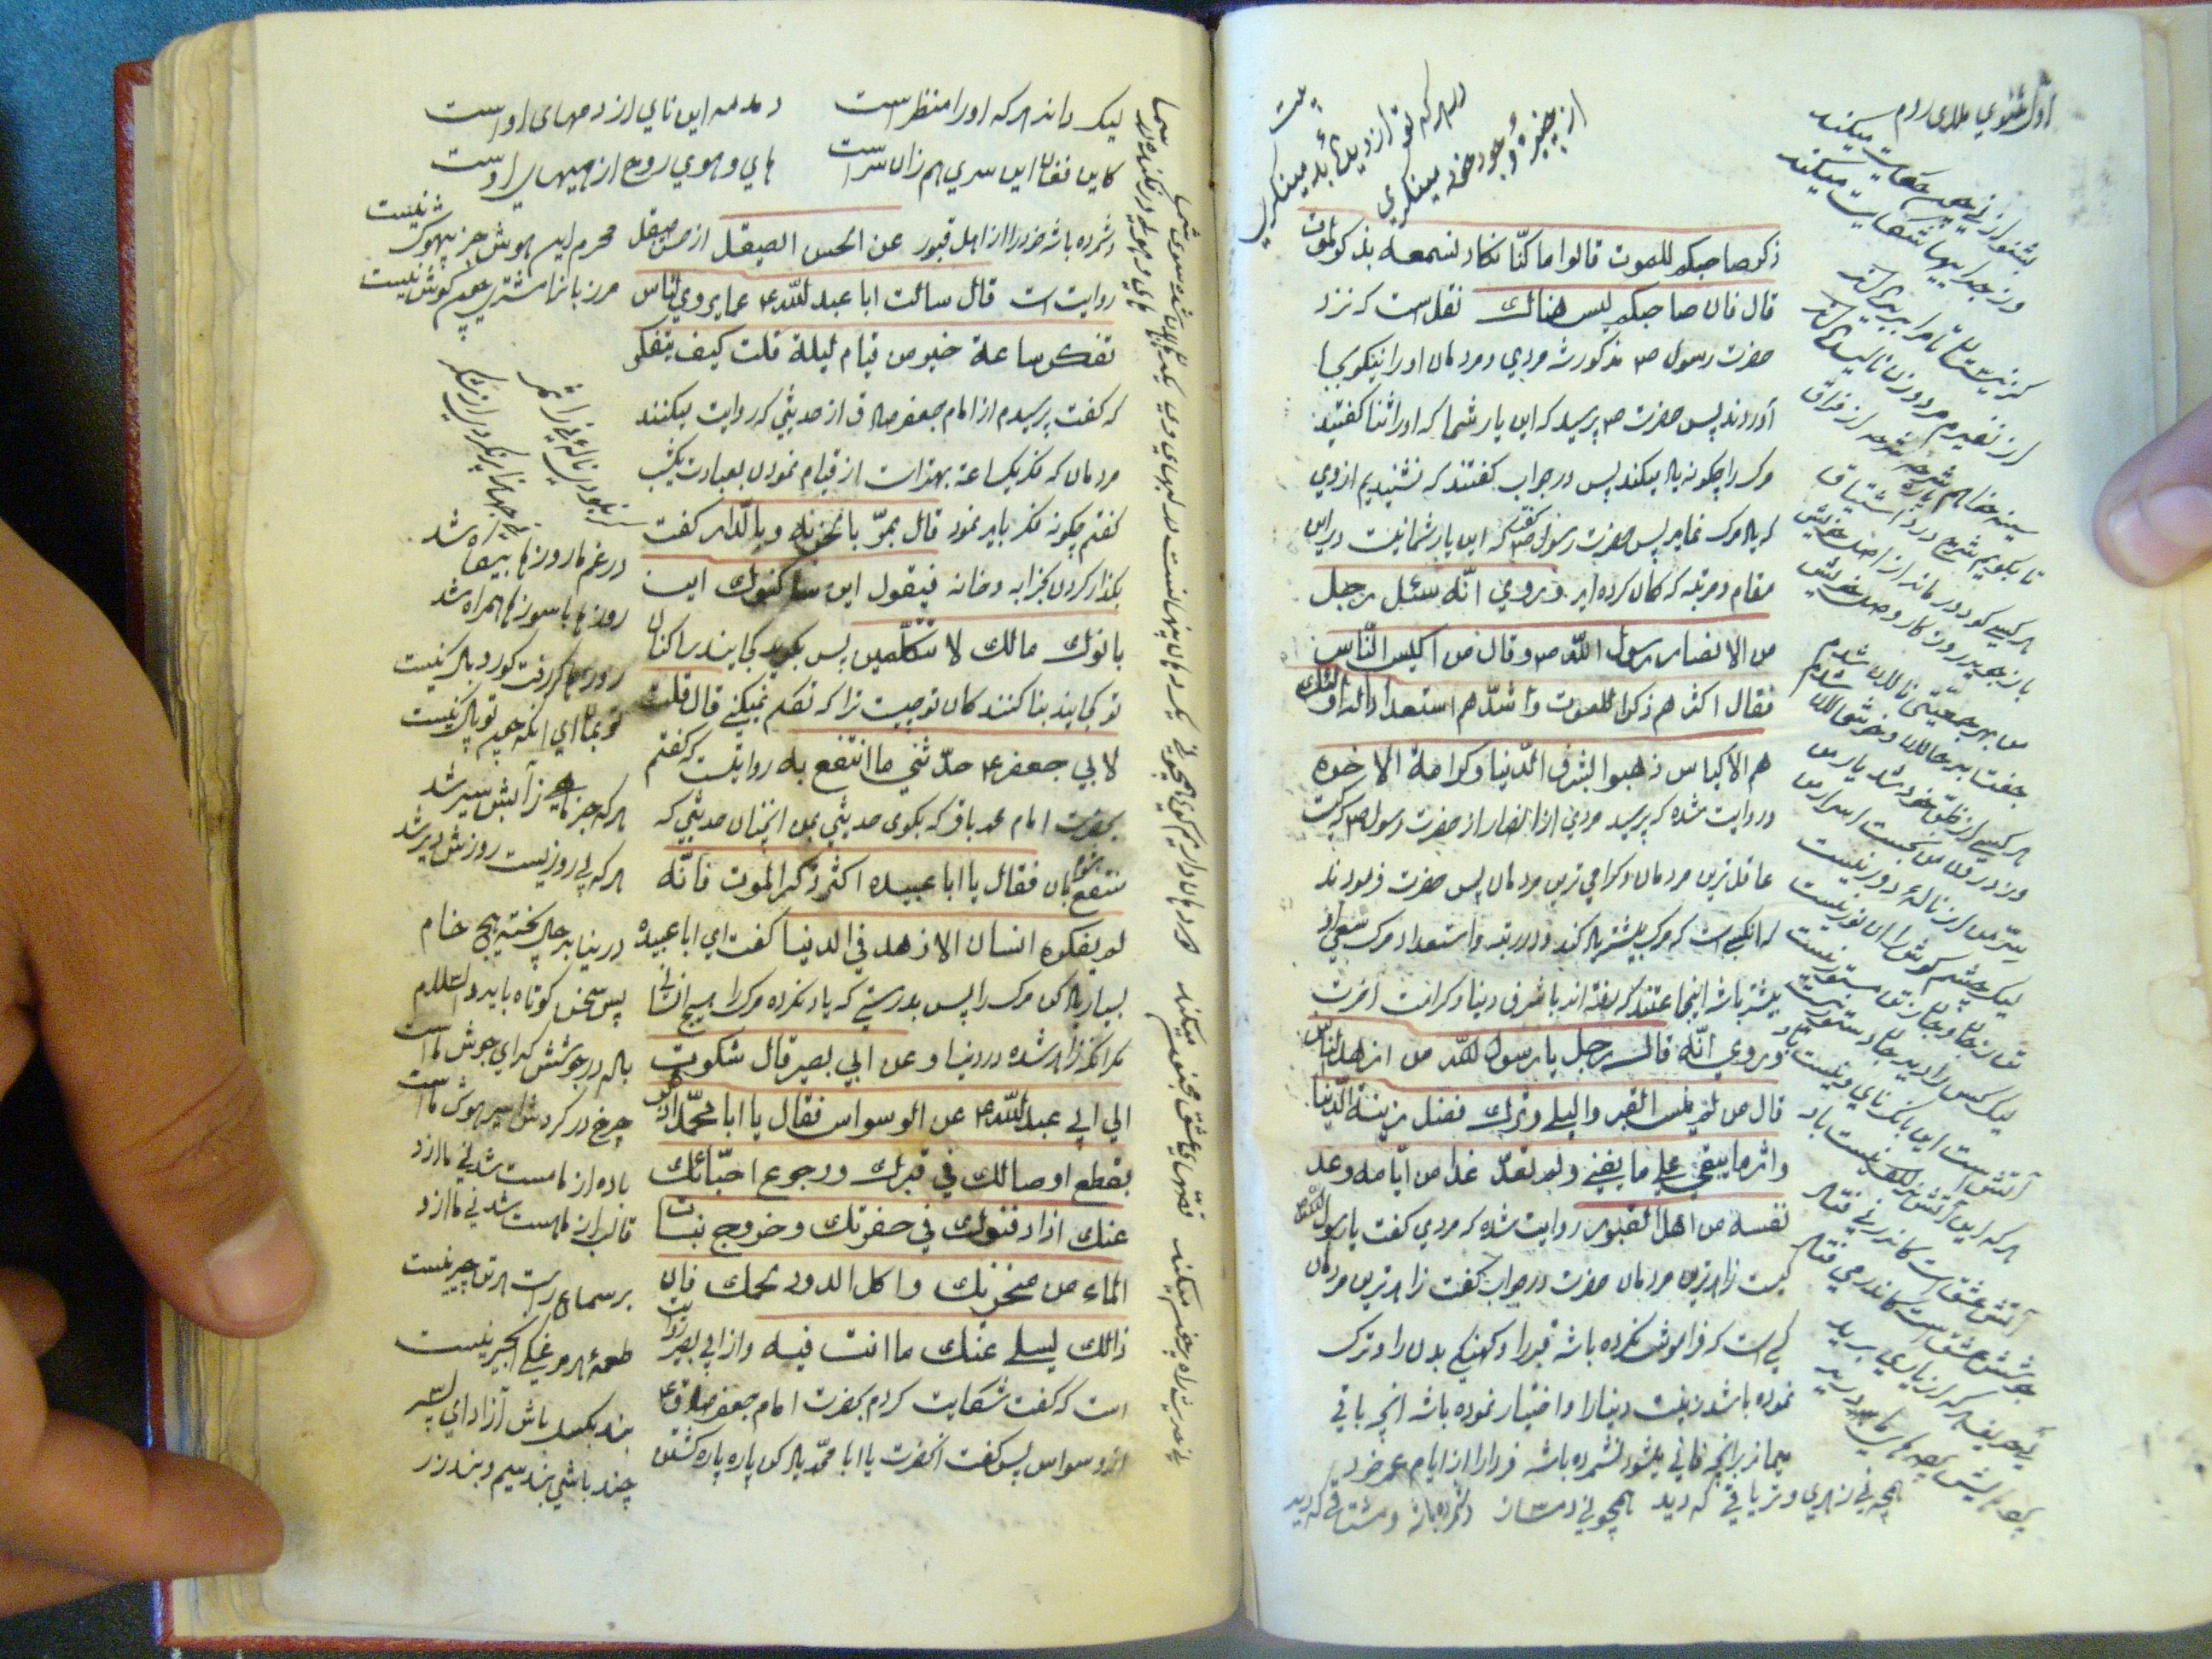 اول مثنوی ملای روم
بشنو از نی چون حکایت میکند
وز جداییها شکایت میکند
کز نیستان تا مرا ببریده اند
از نفیرم مرد و زن نالیده اند
سینه خواهم شرحه شرحه از فراق
تا بگویم شرح درد اشتیاق
هر کسی کو دور ماند از اصل خویش
باز جوید روزگار وصل خویش
من بهر جمعیتی نالان شدم
جفت بدحالان و خوشحالان شدم
هر کسی از ظن خود شد یار من
وز درون من نجست اسرار من
سر من از ناله دور نیست
لیک چشم و گوش را آن نور نیست
تن ز جان و جان ز تن مستور نیست
لیک کس را دید جان دستور نیست
آتش است این بانک نای و نیست باد
هر که این آتش ندارد نیست باد
آتش عشق است کاندر نی فتاد
جوشش عشق است کاندر می فتاد
نی حریف هر که از یاری برید
پرده هایش پرده های ما درید
همچو نی زهری و تریاقی که دید همچو نی دمساز و مشتاقی که دید
ذکر صاحبکم للموت قالوا ما کنّا نکاد نسمعه یذکر الموت
قال فان صاحبکم لیس هنالک نقل است که نزد
حضرت رسول ص مذکور شد مردی و مردمان او را نیکویی بجا
آوردند پس حضرت ص پرسید که این یار شما که او را ثنا گفتید
مرک را چگونه یاد میکند پس در جواب گفتند که نشنیدیم از وی
که یاد مرک نماید پس حضرت رسول ص گفت که این یار شما نیست در این
مقام و مرتبه که گمان کرده اید و روی انّه سئل رجل
من الانصار رسول اللّه ص و قال من اکیس النّاس
فقال اکثرهم ذکرا للموت و اشدّهم استعدادا له اولئک
هم الاکیاس ذهبوا بشرف الدّنیا و کرامة الاخرة
و روایت شده که پرسید مردی از انصار از حضرت رسول ص که کیست
عاقل ترین مردمان و گرامی ترین مردمان پس حضرت فرمودند
که آنکسی است که مرک بیشتر یاد کند و در رتبه و استعداد مرک سعی او
بیشتر باشد اینجماعتند که رفته اند با شرف دنیا و کرامت آخرت
و روی انّه قال رجل یا رسول اللّه من ازهد النّاس
قال من لم ینس القبر و البلی و ترک فضل زینة الدّنیا
و اثر ما یبقی علی ما یفنی و لم تعدّ غدا من ایّامه و عد
نفسه من اهل القبور روایت شده که مردی گفت یا رسول اللّه
کیست زاهدترین مردمان حضرت در جواب گفت زاهدترین مردمان
کسی است که فراموش نکرده باشد قبر را و کهنگی بدن را و ترک
نموده باشد زینت دنیا را و اختیار نموده باشد انچه باقی
میماند بر انچه فانی میشود و نشمرده باشد فردا را از ایام عمر خود
و شمرده باشد
لیک داند هر که او را منظر است دمدمه این نای از دمهای اوست
کاین فغان این سری هم زان سر است های و هوی روح از هیهای اوست
محرم این هوش جز بیهوش نیست
مر زبانرا مشتری جز گوش نیست
و شمرده باشد خود را از اهل قبور عن الحسن الصیقل از حسن صیقل
روایت است قال سالت ابا عبد اللّه ع عما یروی النّاس
تفکر ساعة خیر من قیام لیلة قلت کیف یتفکر
که گفت پرسیدم از امام جعفر صادق از حدیثی که روایت میکنند
مردمان که فکر یکساعة بهتر است از قیام نمودن بعبادت یکشب
گفتم چگونه فکر باید نمود قال یمرّ بالخربة و بالدّار گفت
بگذار کردن بخرابه و خانه فیقول این ساکنوک این
بانوک مالک لا تتکلّمین پس بگوید کجایند ساکنان
تو کجایند بنا کنندکان تو چیست ترا که تکلم نمیکنی قال قلت
لابی جعفر ع حدّثنی ما انتفع به روایتست که گفتم
بحضرت امام محمد باقر که بگوی حدیثی بمن آنچنان حدیثی که
منتفع شوم بان فقال یا ابا عبیده اکثر ذکر الموت فانّه
لم یفکره انسان الا زهد فی الدنیا گفت ای ابا عبیده
بسیار یاد کن مرک را پس بدرستی که یاد نکرده مرک را هیچ انسانی
مکر انکه زاهد شده در دنیا و عن ابی بصیر قال شکوت
الی ابی عبد اللّه ع عن الوسواس فقال یا ابا محمّد اذکر
بقطع اوصالک فی قبرک و رجوع احبّائک
عنک اذا دفنوک فی حفرتک و خروج بنات
الماء من منخریک و اکل الدود لحمک فان
ذالک یسلی عنک ما انت فیه و از ابی بصیر روایت
است که گفت شکایت کردم بحضرت امام جعفر صادق ع
از وسواس پس گفت انحضرت یا ابا محمّد یاد کن پاره پاره گشتن
در غم ما روزها بیگاه شد
روزها با سوزها همراه شد
روزها گر رفت گو رو باک نیست
تو بمان ای آنکه چون تو پاک نیست
هر که جز ماهی ز آبش سیر شد
هر که بی روزیست روزش دیر شد
در نیابد حال پخته هیچ خام
پس سخن کوتاه باید والسلام
باده در جوشش گدای جوش ماست
چرخ در گردش اسیر هوش ماست
باده از ما مست شد نی ما ازو
قالب از ما هست شد نی ما ازو
بر سماع راست هر تن چیر نیست
طعمه هر مرغکی انجیر نیست
بند بکسل باش آزاد ای پسر
چند باشی بند سیم و بند زر